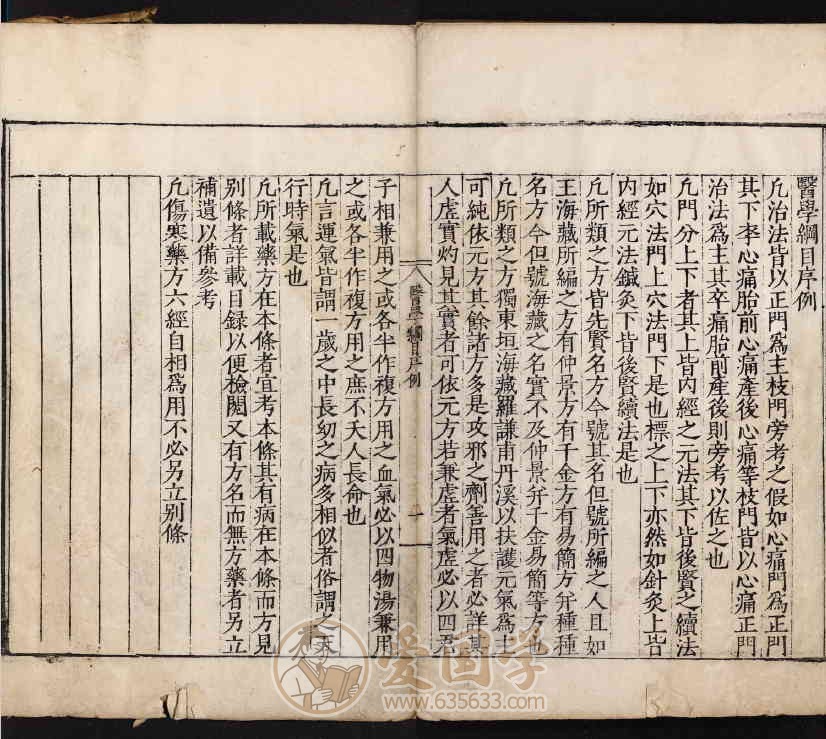 醫學綱目序例
凡治法皆以正門爲主枝門旁考之假如心痛門爲正門
其下李心痛胎前心痛產後心痛等枝門皆以心痛正門
治法爲主其卒痛胎前產後則旁考以佐之也
凡門分上下者其上皆内經之元法其下皆後賢之續法
如穴法門上穴法門下是也標之上下亦然如針灸上皆
内經元法鍼灸下皆後賢續法是也
凡所類之方皆先賢名方今號其名但號所編之人且如
王海藏所編之方有仲景方有千金方有易簡方并種種
名方今但號海藏之名實不及仲景并千金易簡等方也
凡所類之方獨東垣海藏羅謙甫丹溪以扶護元氣爲主
可純依元方其餘諸方多是攻邪之劑善用之者必詳其
人虛實灼見其實者可依元方若兼虛者氣虛必以四君
醫學綱目序例
二
子相兼用之或各半作複方用之血氣必以四物湯兼用
之或各半作複方用之庶不夭人長命也
凡言運氣皆謂一歲之中長幼之病多相似者俗謂之天
行時氣是也
凡所載藥方在本條者宜考本條其有病在本條而方見
别條者詳載目録以便檢閱又有方名而無方藥者另立
補遺以備參考
凡傷寒藥方六經自相爲用不必另立别條
爱国学
www.635633.com